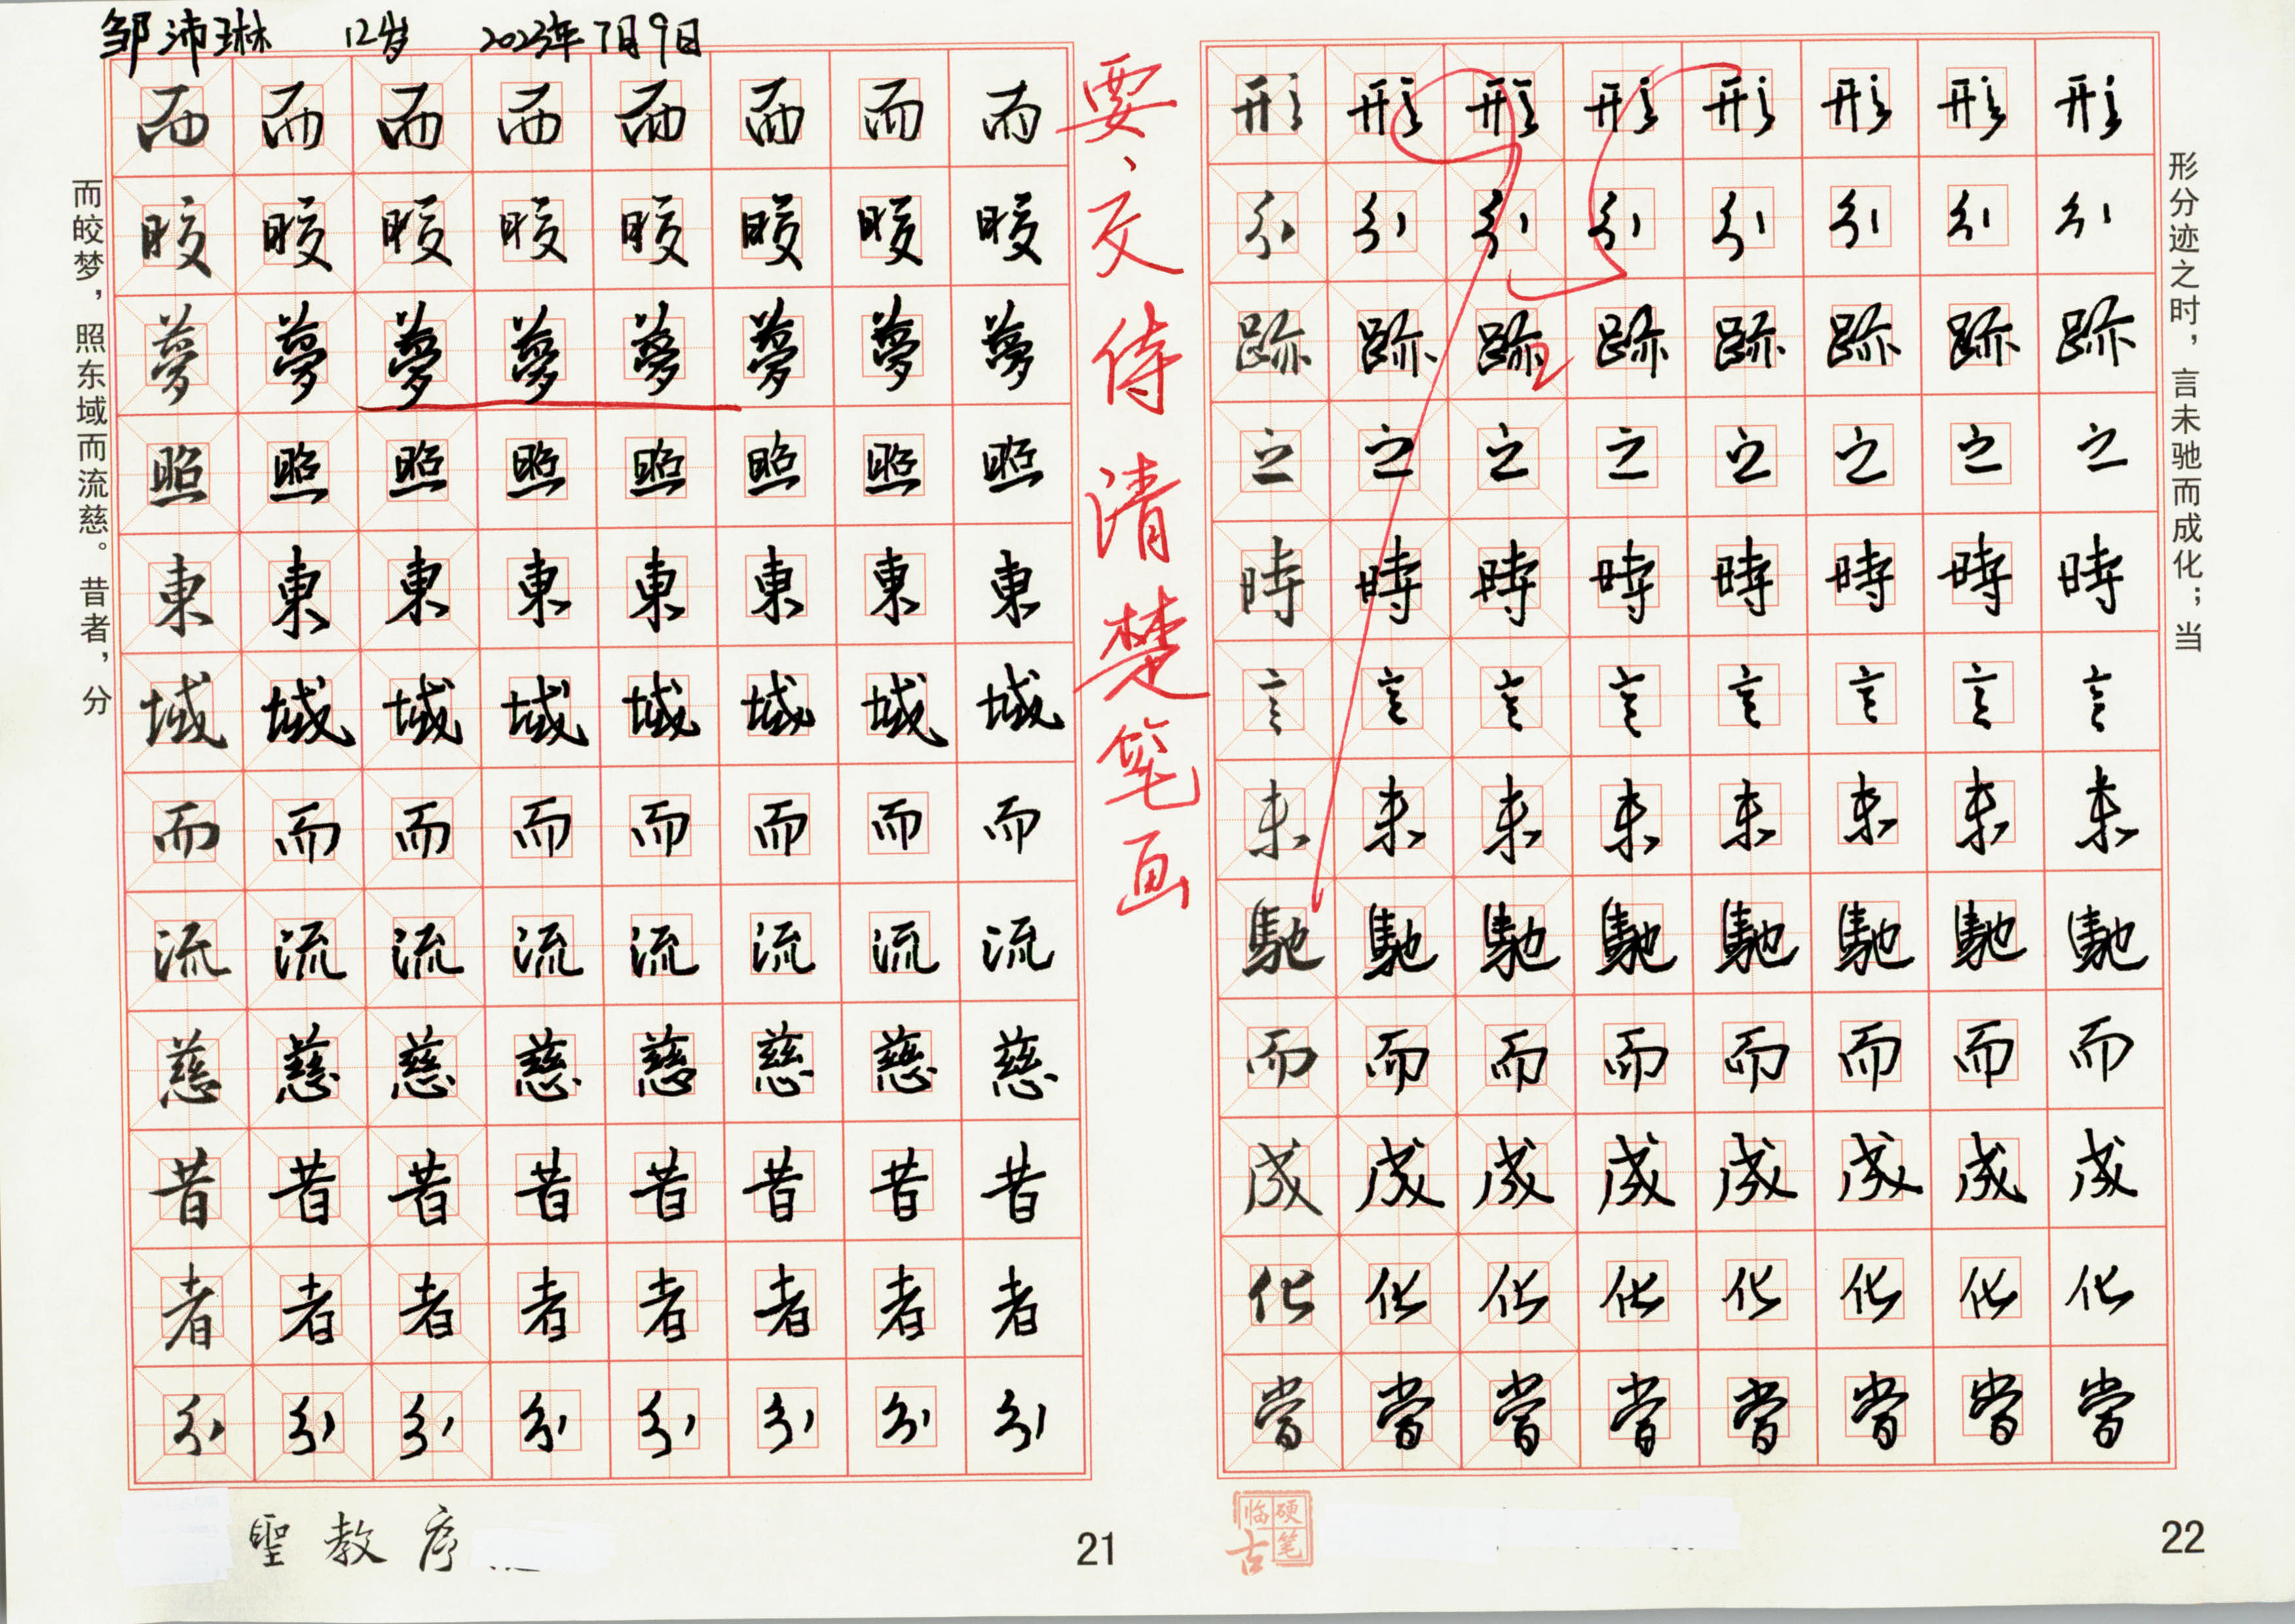 邹沛琳 12岁 2023年7月9日
而皎梦，照东域而流慈。昔者，分
而而而而而而而而
皎皎皎皎皎皎皎皎
夢夢夢夢夢夢夢夢
照照照照照照照照
東東東東東東東東
域域域域域域域域
而而而而而而而而
流流流流流流流流
慈慈慈慈慈慈慈慈
昔昔昔昔昔昔昔昔
者者者者者者者者
分分分分分分分分
聖教序
21
要交待清楚笔画
形形形形形形形形
分分分分分分分分
跡跡跡跡跡跡跡跡
之之之之之之之之
時時時時時時時時
言言言言言言言言
未未未未未未未未
馳馳馳馳馳馳馳馳
而而而而而而而而
成成成成成成成成
化化化化化化化化
當當當當當當當當
形分迹之时，言未驰而成化；当
硬笔临古
22